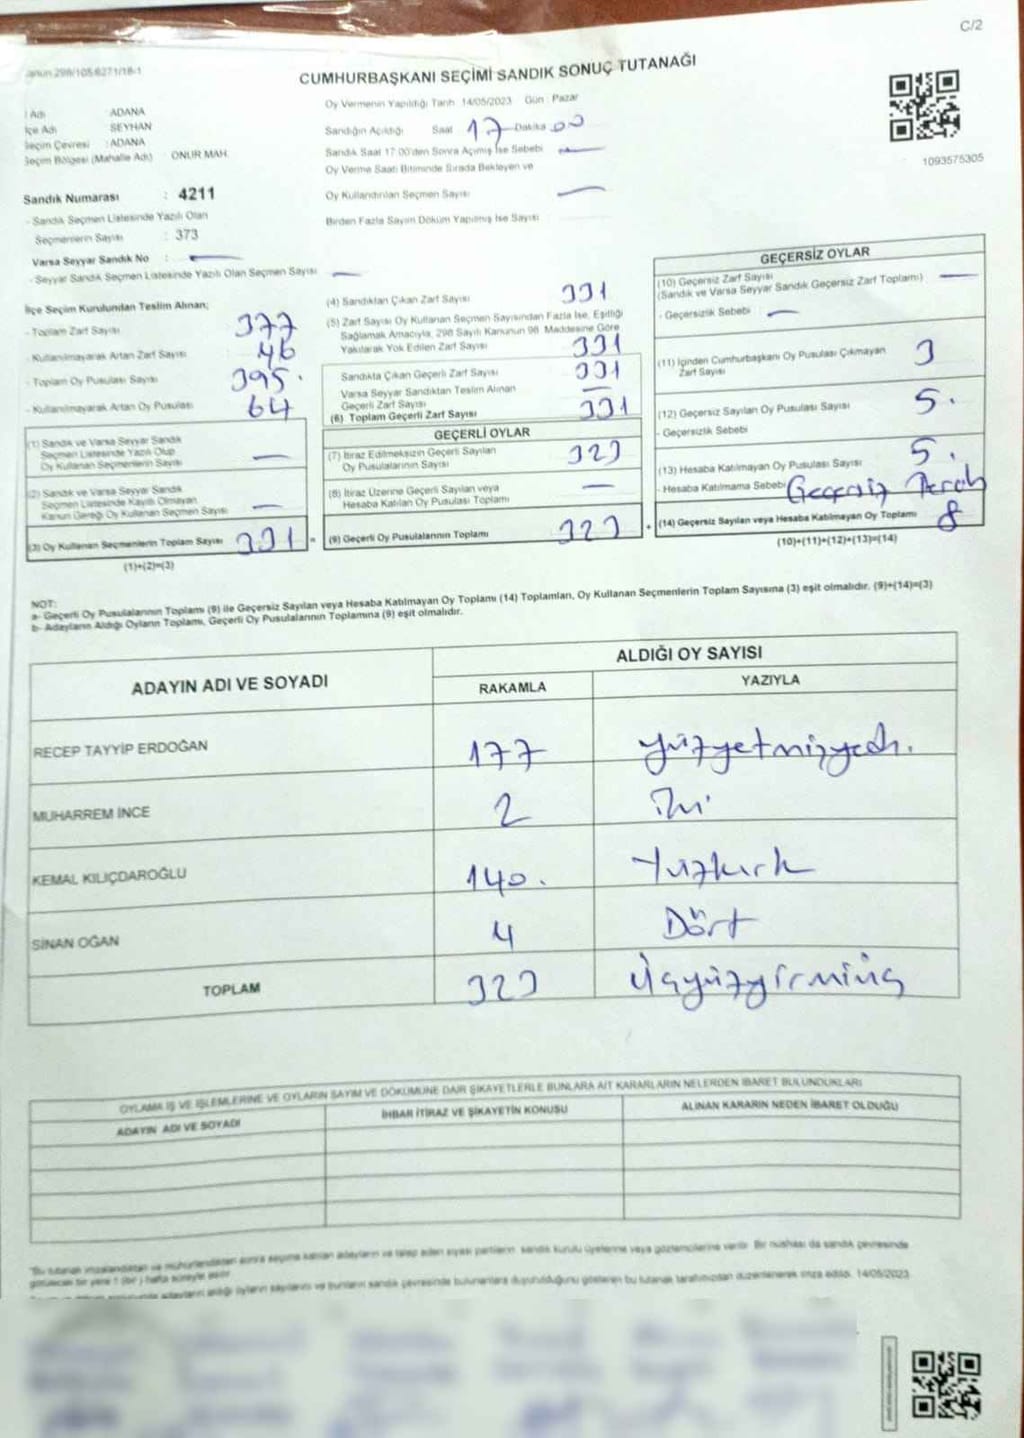 C/2
CUMHURBAŞKANI SEÇİMİ SANDIK SONUÇ TUTANAĞI
İl Adı : ADANA
İlçe Adı : SEYHAN
Seçim Çevresi : ADANA
Seçim Bölgesi (Mahalle Adı) : ONUR MAH.
Sandık Numarası : 4211
- Sandık Seçmen Listesinde Yazılı Olan
Seçmenlerin Sayısı : 373
Varsa Seyyar Sandık No : —
- Seyyar Sandık Seçmen Listesinde Yazılı Olan Seçmen Sayısı —
Oy Vermenin Yapıldığı Tarih 14/05/2023 Gün : Pazar
Sandığın Açıldığı Saat 17 Dakika 00
Sandık Saat 17:00'den Sonra Açılmış İse Sebebi —
Oy Verme Saati Bitiminde Sırada Bekleyen ve
Oy Kullandırılan Seçmen Sayısı —
Birden Fazla Sayım Döküm Yapılmış İse Sayısı
1093575305
İlçe Seçim Kurulundan Teslim Alınan;
- Toplam Zarf Sayısı 377
- Kullanılmayarak Artan Zarf Sayısı 46
- Toplam Oy Pusulası Sayısı 395.
- Kullanılmayarak Artan Oy Pusulası 64
(1) Sandık ve Varsa Seyyar Sandık
Seçmen Listesinde Yazılı Olup
Oy Kullanan Seçmenlerin Sayısı —
(2) Sandık ve Varsa Seyyar Sandık
Seçmen Listesinde Kayıtlı Olmayan
Kanun Gereği Oy Kullanan Seçmen Sayısı —
(3) Oy Kullanan Seçmenlerin Toplam Sayısı 331 =
(1)+(2)=(3)
(4) Sandıktan Çıkan Zarf Sayısı 331
(5) Zarf Sayısı Oy Kullanan Seçmen Sayısından Fazla İse, Eşitliği
Sağlamak Amacıyla, 298 Sayılı Kanunun 98. Maddesine Göre
Yakılarak Yok Edilen Zarf Sayısı 331
Sandıkta Çıkan Geçerli Zarf Sayısı 331
Varsa Seyyar Sandıktan Teslim Alınan
Geçerli Zarf Sayısı —
(6) Toplam Geçerli Zarf Sayısı 331
GEÇERLİ OYLAR
(7) İtiraz Edilmeksizin Geçerli Sayılan
Oy Pusulalarının Sayısı 323
(8) İtiraz Üzerine Geçerli Sayılan veya
Hesaba Katılan Oy Pusulası Toplamı —
(9) Geçerli Oy Pusulalarının Toplamı 323 +
GEÇERSİZ OYLAR
(10) Geçersiz Zarf Sayısı
(Sandık ve Varsa Seyyar Sandık Geçersiz Zarf Toplamı) —
- Geçersizlik Sebebi —
(11) İçinden Cumhurbaşkanı Oy Pusulası Çıkmayan
Zarf Sayısı 3
(12) Geçersiz Sayılan Oy Pusulası Sayısı 5.
- Geçersizlik Sebebi
(13) Hesaba Katılmayan Oy Pusulası Sayısı 5.
- Hesaba Katılmama Sebebi Geçersiz
(14) Geçersiz Sayılan veya Hesaba Katılmayan Oy Toplamı 8
(10)+(11)+(12)+(13)=(14)
NOT:
a- Geçerli Oy Pusulalarının Toplamı (9) ile Geçersiz Sayılan veya Hesaba Katılmayan Oy Toplamı (14) Toplamları, Oy Kullanan Seçmenlerin Toplam Sayısına (3) eşit olmalıdır. (9)+(14)=(3)
b- Adayların Aldığı Oyların Toplamı, Geçerli Oy Pusulalarının Toplamına (9) eşit olmalıdır.
ADAYIN ADI VE SOYADI
ALDIĞI OY SAYISI
RAKAMLA YAZIYLA
RECEP TAYYİP ERDOĞAN 177 yüzyetmişyedi.
MUHARREM İNCE 2 iki
KEMAL KILIÇDAROĞLU 140. Yüzkırk
SİNAN OĞAN 4 Dört
TOPLAM 323 Üçyüzyirmiüç
OYLAMA İŞ VE İŞLEMLERİNE VE OYLARIN SAYIM VE DÖKÜMÜNE DAİR ŞİKAYETLERLE BUNLARA AİT KARARLARIN NELERDEN İBARET BULUNDUKLARI
ADAYIN ADI VE SOYADI
İHBAR İTİRAZ VE ŞİKAYETİN KONUSU
ALINAN KARARIN NEDEN İBARET OLDUĞU
"Bu tutanak imzalandıktan ve mühürlendikten sonra seçime katılan adayların ve talep eden siyasi partilerin sandık kurulu üyelerine veya gözlemcilerine verilir. Bir nüshası da sandık çevresinde
götürülecek bir yere 1 (bir) hafta süreyle asılır.